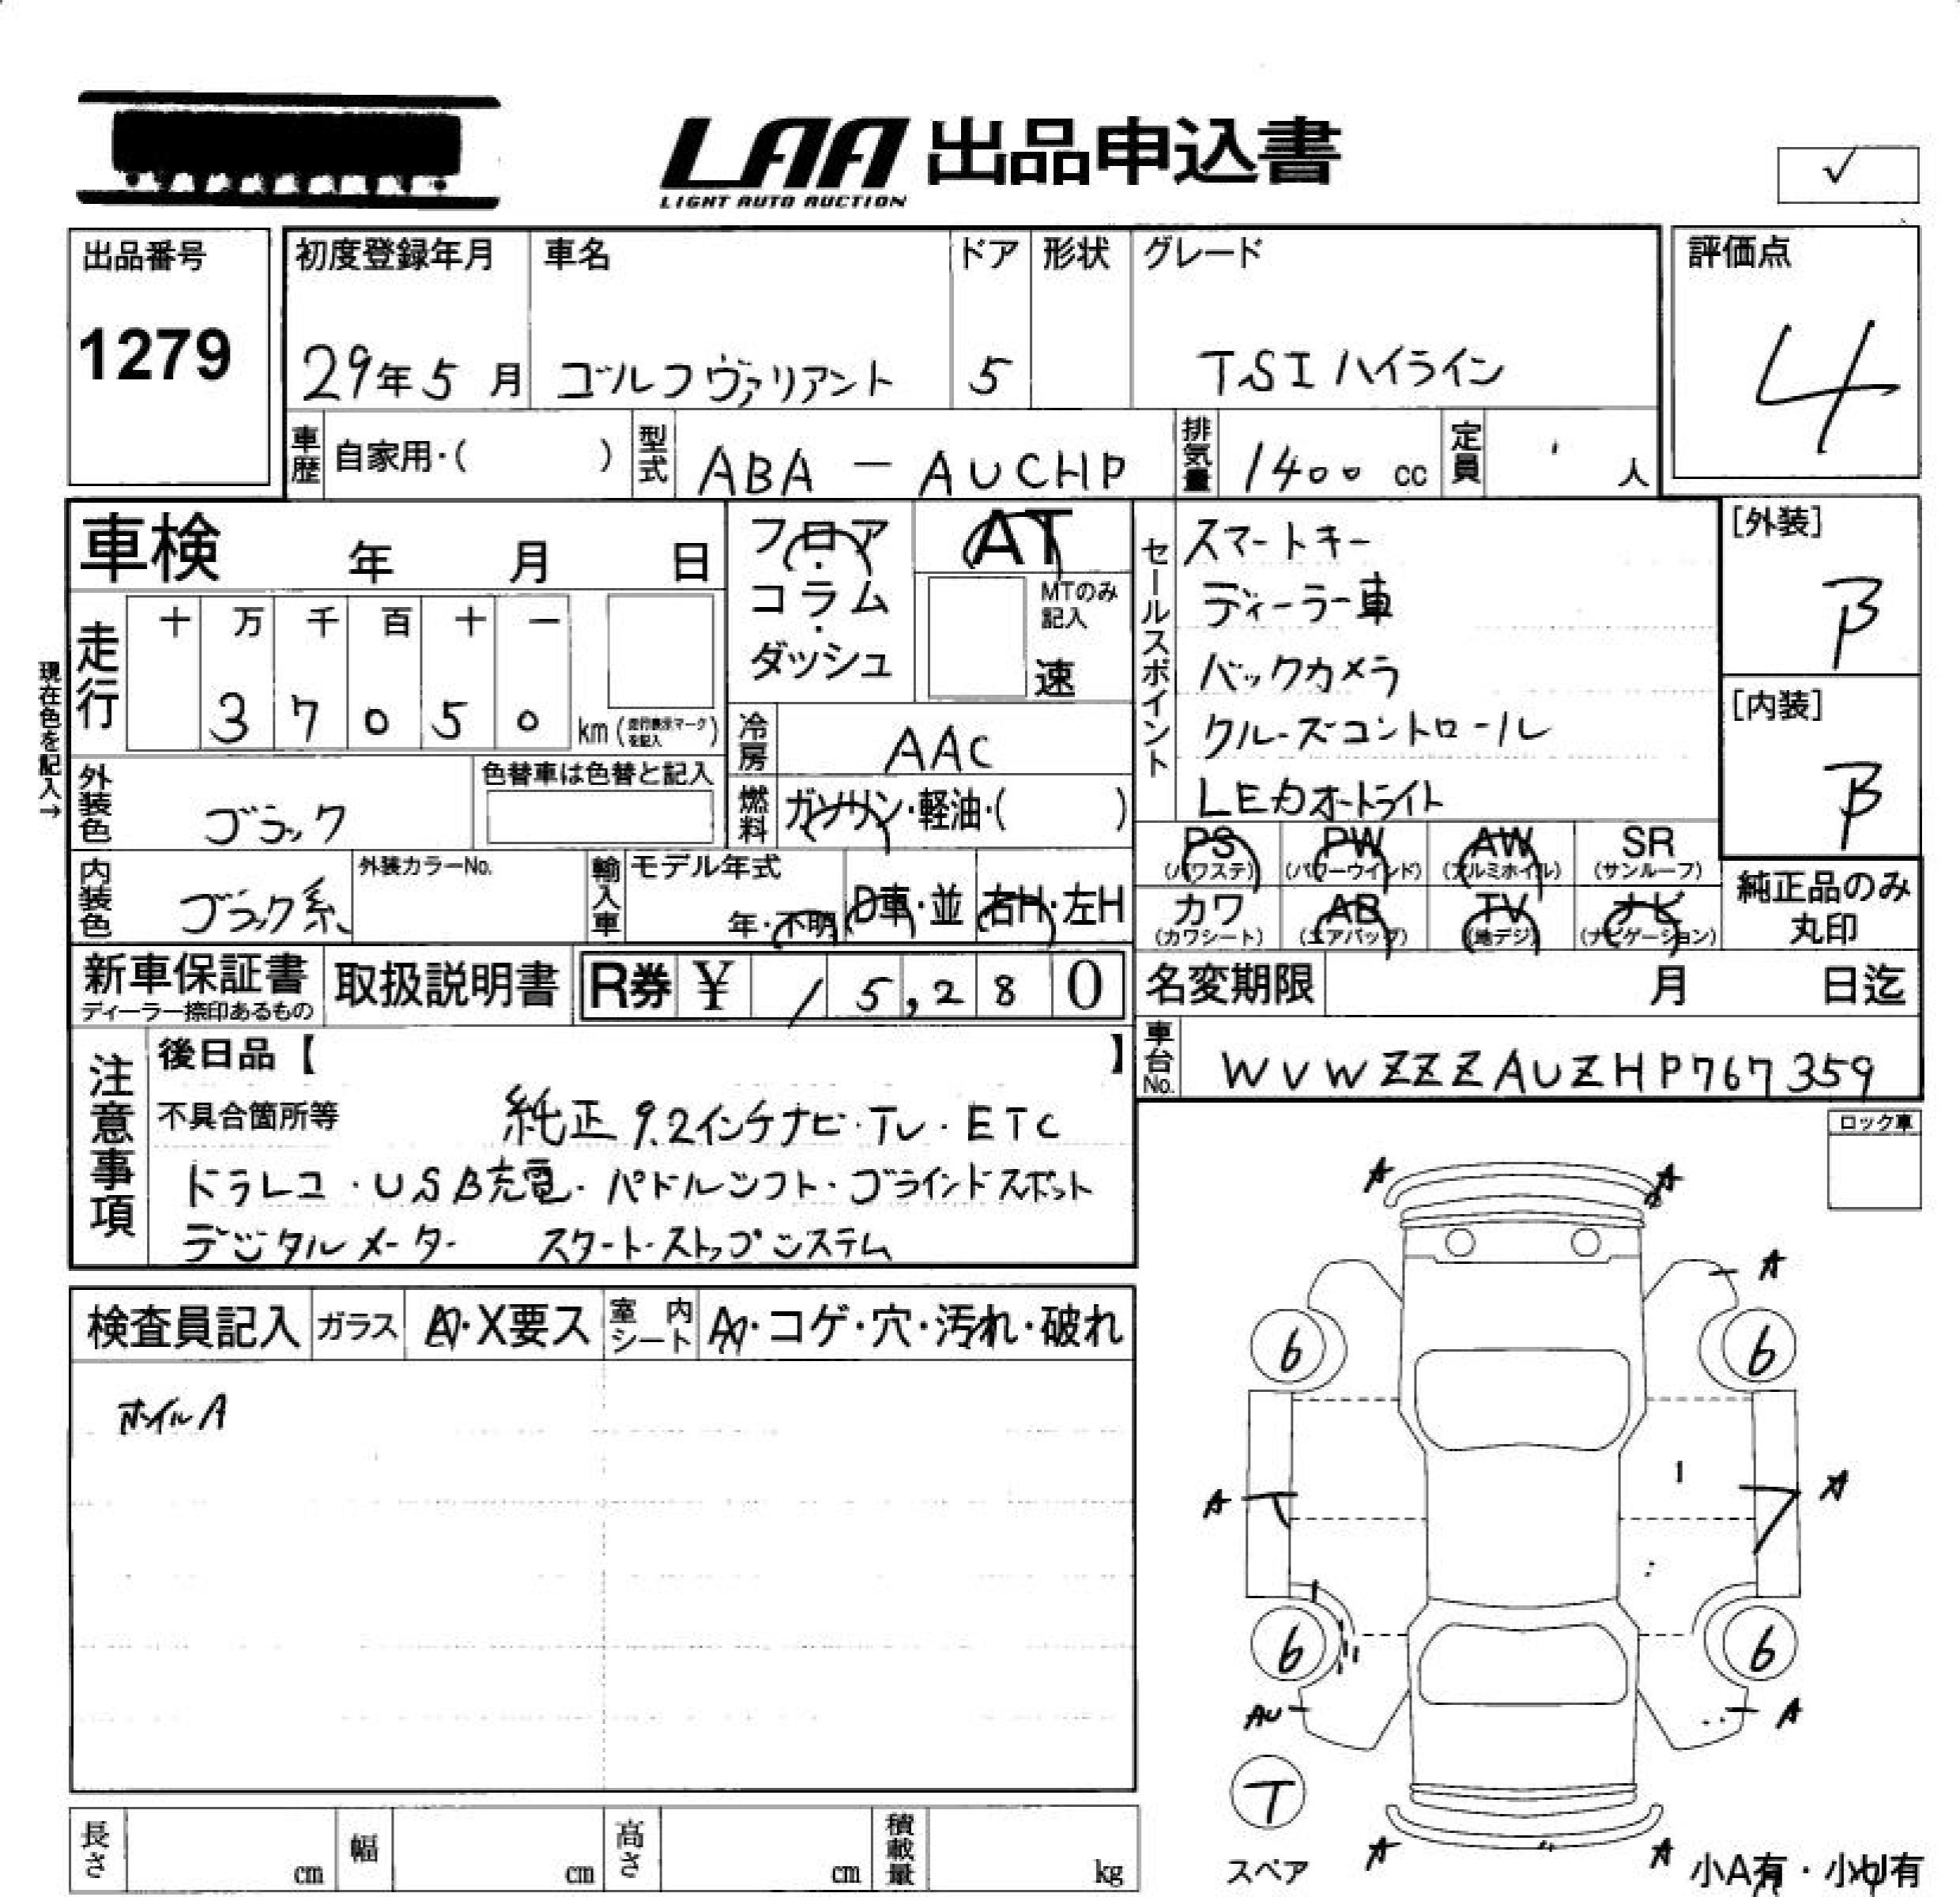 LAA 出品申込書
LIGHT AUTO AUCTION
✓
出品番号
1279
初度登録年月 車名 ドア 形状 グレード
29年5月 ゴルフヴァリアント 5 TSIハイライン
評価点
4
車歴 自家用・( ) 型式 ABA - AUCHP 排気量 1400 cc 定員 人
車検 年 月 日
フロア・コラム・ダッシュ
AT
MTのみ記入
速
セールスポイント
スマートキー
ディーラー車
バックカメラ
クルーズコントロール
LEDオートライト
[外装]
B
[内装]
B
現在色を記入→
走行 十 万 千 百 十 一
3 7 0 5 0 km(走行表示マークを記入)
冷房 AAC
外装色 ブラック 色替車は色替と記入
燃料 ガソリン・軽油・( )
内装色 ブラック系 外装カラーNo.
輸入車 モデル年式 年・不明 D車・並 右H・左H
PS AW PW SR
(パワステ) (パワーウインド) (アルミホイル) (サンルーフ)
カワ AB TV ナビ
(カワシート) (エアバッグ) (地デジ) (ナビゲーション)
純正品のみ
丸印
新車保証書 取扱説明書 R券 ¥ 15,280
ディーラー捺印あるもの
名変期限 月 日迄
車台No. WVWZZZAUZHP767359
注意事項
後日品【 】
不具合箇所等 純正9.2インチナビ・TV・ETC
ドラレコ・USB充電・パドルシフト・ブラインドスポット
デジタルメーター スタートストップシステム
ロック車
検査員記入 ガラス A・X要ス 室内シート A・コゲ・穴・汚れ・破れ
ホイルA
A A
A
6 6
A A
6 6
AU A
T
スペア
A A
小A有・小U有
長さ cm 幅 cm 高さ cm 積載量 kg